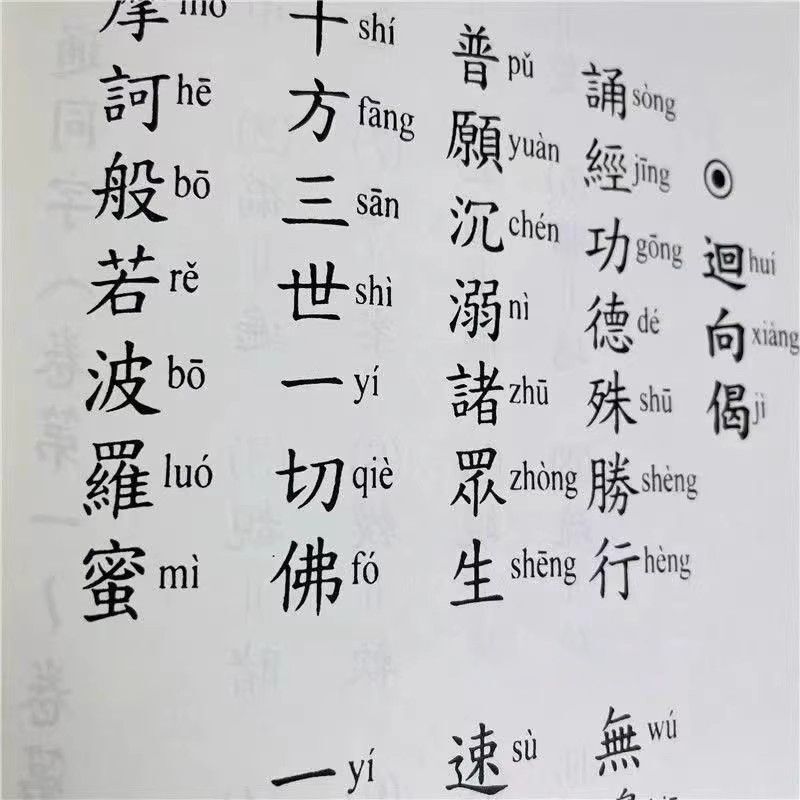 ◉迴huí向xiàng偈jì
誦sòng經jīng功gōng德dé殊shū勝shèng行hèng 無wú
普pǔ願yuàn沉chén溺nì諸zhū眾zhòng生shēng 速sù
十shí方fāng三sān世shì一yí切qiè佛fó 一yí
摩mó訶hē般bō若rě波bō羅luó蜜mì